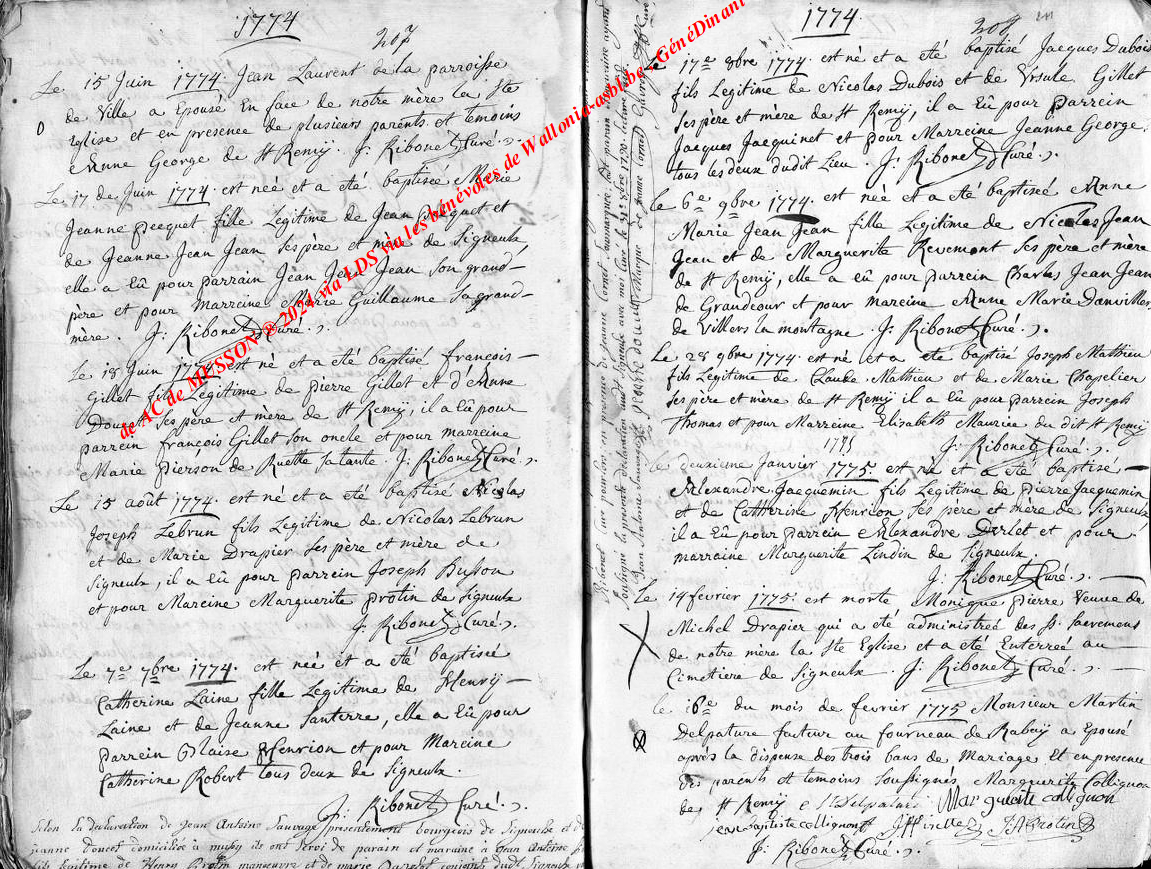 1774
207
Le 15 Juin 1774. Jean Laurent de la parroisse
de Ville a Epousé En face de notre mère la Ste
O
Eglise et en presence de plusieurs parents et temoins
Anne George de St Remÿ. J: Ribonet Curé.
Le 17 de Juin 1774. est née et a été baptisée Marie
Jeanne Pecquet fille Legitime de Jean Pecquet et
de Jeanne Jean Jean ses père et mère de Signeulx,
elle a Eû pour parrain Jean Jean Jean son grand-
père et pour Marreine Marie Guillaume sa grand-
mère. J: Ribonet Curé.
Le 18 Juin 1774 est né et a été baptisé françois-
Gillet fils Legitime de pierre Gillet et d'Anne
Doucet ses père et mere de St Remÿ, il a Eû pour
parrein françois Gillet son oncle et pour marreine
Marie pierson de Ruette sa tante. J: Ribonet Curé.
Le 15 août 1774. est né et a été baptisé Nicolas
Joseph Lebrun fils Legitime de Nicolas Lebrun
et de Marie Drapier ses père et mère de
Signeulx, il a Eû pour parrein Joseph Busson
et pour Mareine Marguerite protin de Signeulx
J: Ribonet Curé.
Le 7e 7bre 1774. est née et a été baptiseé
Catherine Laine fille Legitime de Henrÿ-
Laine et de Jeanne Santerre, elle a Eû pour
parrein Blaise Henrion et pour Mareine
Catherine Robert tous deux de Signeulx.
J: Ribonet Curé.
Selon la declaration de Jean Antoine Sauvage presentement bourgeois de Signeulx et de
jeanne doucet domiciliée a mussy ils ont servi de parain et maraine à Jean Antoine
fils legitime de Henry Protin maneuvre et de marie conjoints dudt Signeulx
de AC de MUSSON © 2024 via LDS via les bénévoles de Wallonia-asbl.be - GénéDinant
1774.
208
Le 17e 8bre 1774. est né et a été baptisé Jacques Dubois
fils Legitime de Nicolas Dubois et de Ursule Gillet
ses père et mère de St Remÿ, il a Eû pour parrein
Jacques Jacquinet et pour Marreine Jeanne George:
tous les deux dudit Lieu. J: Ribonet Curé.
Le 6e 9bre 1774. est née et a été baptisée Anne
Marie Jean Jean fille Legitime de Nicolas Jean
Jean et de Marguerite Revemont ses pere et mère
de St Remÿ, elle a eû pour parrein Charles Jean Jean
de Grandcour et pour mareine Anne Marie Danviller
de Villers la montagne. J: Ribonet Curé.
Le 28 9bre 1774 est né et a été baptisé Joseph Mathieu
fils Legitime de Claude Mathieu et de Marie Chapelier
ses pere et mère de St Remÿ il a Eû pour parrein Joseph
Thomas et pour Marreine Elizabeth Maurice du dit St Remÿ
J: Ribonet Curé.
Le deuxieme Janvier 1775. est né et a été baptisé-
Alexandre Jacquemin fils Legitime de pierre Jacquemin
et de Catherine Henrion ses père et mère de Signeulx
il a Eû pour parrein Alexandre Derlet et pour
marraine Marguerite Lindin de Signeulx.
J: Ribonet Curé.
Le 14 fevrier 1775. est morte Monique pierre Veuve de
Michel Drapier qui a été administreé des SS. sacremens
de notre mère la Ste Eglise et a été Enterreé au
Cimetiere de Signeulx. J: Ribonet Curé.
Le 16e du mois de fevrier 1775 Monsieur Martin
Delpature facteur au fourneau de Rabaÿ a Epousé
après la dispense des trois bans de Mariage Et en presence
des parents et temoins soussignés Marguerite Collignon
de St Remÿ Marguerite collignon
jean baptiste collignon
J: Ribonet Curé.